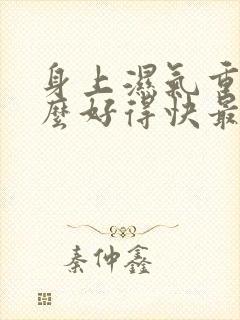 身上濕氣重
麼好得快最
秦仲鑫